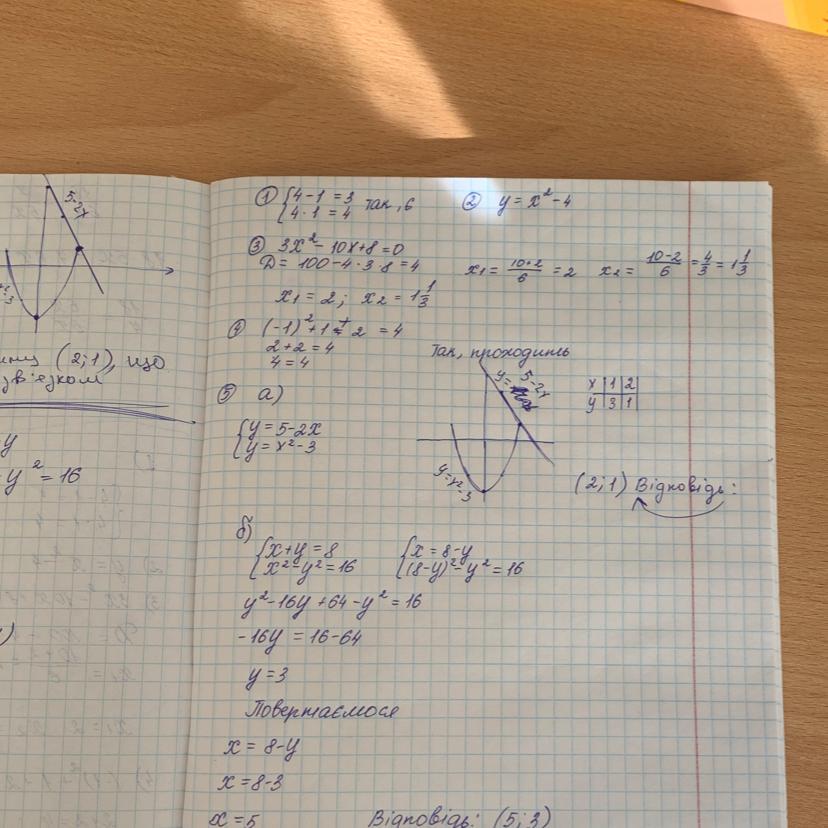 5-2x
(2;1), що
зв'язком
y
y² = 16
① {4-1 = 3
{4·1 = 4 Так, б
② y = x² - 4
③ 3x² - 10x + 8 = 0
D = 100 - 4·3·8 = 4
x₁ = 10+2/6 = 2 x₂ = 10-2/6 = 4/3 = 1 1/3
x₁ = 2; x₂ = 1 1/3
④ (-1)² + 1 + 2 = 4
2 + 2 = 4
4 = 4
Так, проходить
⑤ а)
{y = 5-2x
{y = x² - 3
y = 5-2x
y = x² - 3
x | 1 | 2
y | 3 | 1
(2;1) Відповідь:
б)
{x+y = 8
{x² - y² = 16
{x = 8-y
{(8-y)² - y² = 16
y² - 16y + 64 - y² = 16
-16y = 16-64
y = 3
Повертаємося
x = 8-y
x = 8-3
x = 5
Відповідь: (5;3)